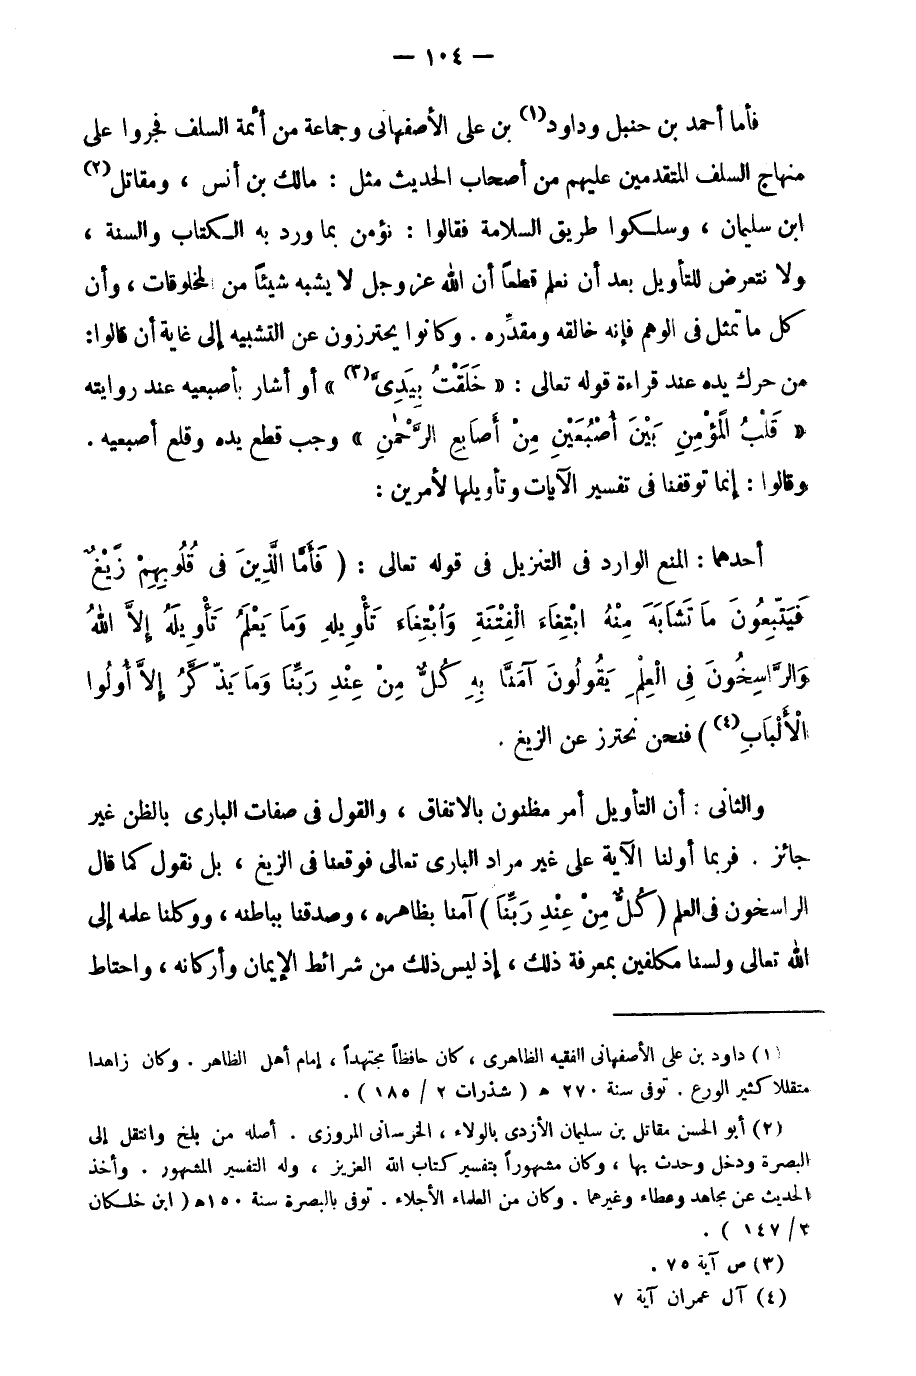 — ١٠٤ —
فأما أحمد بن حنبل وداود(١) بن على الأصفهانى وجماعة من أئمة السلف فجروا على
منهاج السلف المتقدمين عليهم من أصحاب الحديث مثل : مالك بن أنس ، ومقاتل(٢)
ابن سليمان ، وسلكوا طريق السلامة فقالوا : نؤمن بما ورد به الكتاب والسنة ،
ولا نتعرض للتأويل بعد أن نعلم قطعاً أن الله عز وجل لا يشبه شيئاً من المخلوقات ، وأن
كل ما تمثل فى الوهم فإنه خالقه ومقدِّره . وكانوا يحترزون عن التشبيه إلى غاية أن قالوا:
من حرك يده عند قراءة قوله تعالى : « خَلَقْتُ بِيَدِىَّ(٣) » أو أشار بأصبعيه عند روايته
« قَلْبُ الْمُؤْمِنِ بَيْنَ أُصْبُعَيْنِ مِنْ أَصَابِعِ الرَّحْمٰنِ » وجب قطع يده وقلع أصبعيه .
وقالوا : إنما توقفنا فى تفسير الآيات وتأويلها لأمرين :
أحدهما : المنع الوارد فى التنزيل فى قوله تعالى : ( فَأَمَّا الَّذِينَ فى قُلُوبِهِمْ زَيْغٌ
فَيَتَّبِعُونَ مَا تَشَابَهَ مِنْهُ ابْتِغَاءَ الْفِتْنَةِ وَابْتِغَاءَ تَأْوِيلِهِ وَمَا يَعْلَمُ تَأْوِيلَهُ إِلاَّ اللهُ
وَالرَّاسِخُونَ فِى الْعِلْمِ يَقُولُونَ آمَنَّا بِهِ كُلٌّ مِنْ عِنْدِ رَبِّنَا وَمَا يَذَّكَّرُ إِلاَّ أُولُوا
الْأَلْبَابِ(٤) ) فنحن نحترز عن الزيغ .
والثانى : أن التأويل أمر مظنون بالاتفاق ، والقول فى صفات البارى بالظن غير
جائز . فربما أولنا الآية على غير مراد البارى تعالى فوقعنا فى الزيغ ، بل نقول كما قال
الراسخون فى العلم ( كُلٌّ مِنْ عِنْدِ رَبِّنَا ) آمنا بظاهره ، وصدقنا بباطنه ، ووكلنا علمه إلى
الله تعالى ولسنا مكلفين بمعرفة ذلك ، إذ ليس ذلك من شرائط الإيمان وأركانه ، واحتاط
(١) داود بن على الأصفهانى الفقيه الظاهرى ، كان حافظاً مجتهداً ، إمام أهل الظاهر . وكان زاهدا
متقللا كثير الورع . توفى سنة ٢٧٠ هـ ( شذرات ٢ / ١٨٥ ) .
(٢) أبو الحسن مقاتل بن سليمان الأزدى بالولاء ، الخرسانى المروزى . أصله من بلخ وانتقل إلى
البصرة ودخل وحدث بها ، وكان مشهوراً بتفسير كتاب الله العزيز ، وله التفسير المشهور . وأخذ
الحديث عن مجاهد وعطاء وغيرهما . وكان من العلماء الأجلاء . توفى بالبصرة سنة ١٥٠هـ ( ابن خلكان
٣/ ١٤٧ ) .
(٣) ص آية ٧٥ .
(٤) آل عمران آية ٧